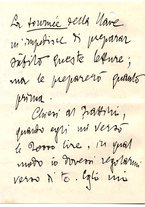 La tournée della Nave
m'impedisce di preparar
subito queste letture;
ma le preparerò quanto
prima.
Chiesi al Frattini,
quando egli mi versò
le 2000 lire, in qual
modo io dovessi regolarmi
verso di te. Egli mi